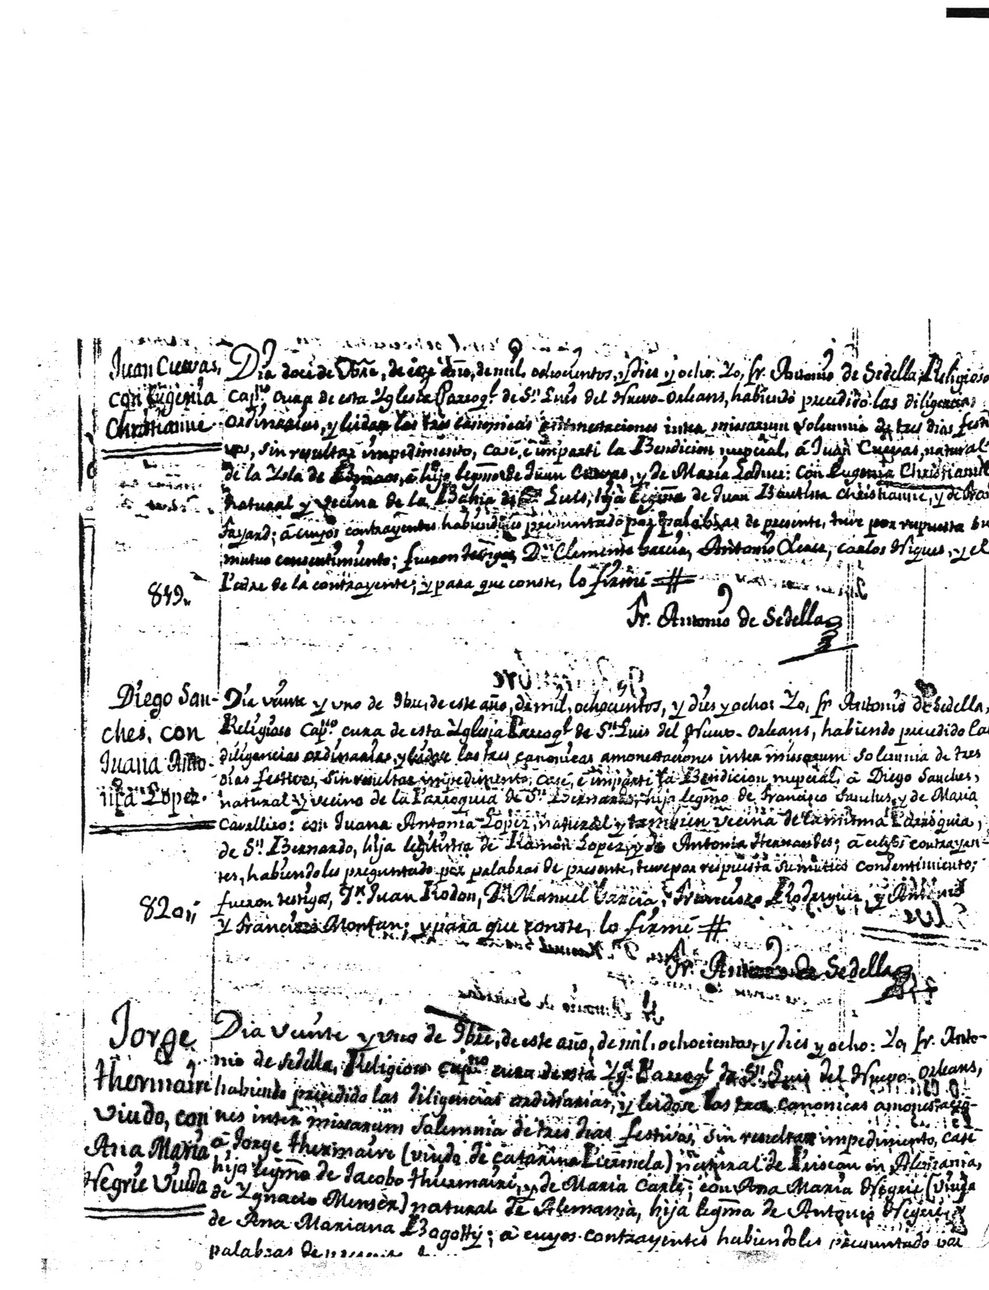 Juan Cuevas,
con Eugenia
Christianne
Dia doce de de este año, de mil ochocientos, y dies y ocho. Yo, fr. Antonio de Sedella, Religioso
Capno. cura de esta Yglesia Parroql. de Sn. Luis del Nuevo-Orleans, habiendo precedido las diligencias
ordinarias, y leidose las tres canonicas amonestaciones inter missarum solemnia de tres dias festi-
vos, sin resultar impedimento, casé, é impartí la Bendicion nupcial, á Juan Cuevas, natural
de la Ysla de hijo legmo. de Juan Cuevas, y de María Ladner: con Eugenia Christianne
natural y vecina de la Bahia de Sn. Luis, hija legma. de Juan Bautista Christianne, y de
Fayard; á cuyos contrayentes, habiendoles preguntado por palabras de presente, tuve por repuesta su
mutuo consentimiento: fueron testigos, Dn. Clemente Garcia, Antonio Carlos y el
Padre de la contrayente; y para que conste, lo firmé
819.
Fr. Antonio de Sedella
Diego San-
ches, con
Juana Anto-
nia Lopez.
Dia veinte y uno de 9bre, de este año, de mil, ochocientos, y dies y ocho: Yo, fr. Antonio de Sedella,
Religioso Capno. cura de esta Yglesia Parroql. de Sn. Luis del Nuevo-Orleans, habiendo precedido las
diligencias ordinarias, y leidose las tres canonicas amonestaciones inter missarum solemnia de tres
dias festivos, sin resultar impedimento, casé, é impartí la Bendicion nupcial, á Diego Sanches,
natural y vecino de la Parroquia de Sn. Bernardo, hijo legmo. de Francisco Sanches, y de Maria
Cavallero: con Juana Antonia Lopez, natural y tambien vecina de la misma Parroquia,
de Sn. Bernardo, hija legitima de Ramón Lopez, y de Antonia Hernandes; á cuyos contrayen-
tes, habiendoles preguntado por palabras de presente, tuve por respuesta su mutuo consentimiento;
fueron testigos, Dn. Juan Rodon, Dn. Manuel Garcia, Francisco Rodriguez, y Antonio
y Francisco y para que conste, lo firmé
820
Fr. Antonio de Sedella
Jorge
Thermaire
Viudo, con
Ana Maria
Negrie Viuda
Dia veinte y uno de 9bre, de este año, de mil, ochocientos, y dies y ocho: Yo, fr. Anto-
nio de Sedella, Religioso Capno. cura de esta Yga. Parroql. de Sn. Luis del Nuevo-Orleans,
habiendo precedido las diligencias ordinarias, y leidose las tres canonicas amonestacio-
nes inter missarum solemnia de tres dias festivos, sin resultar impedimento, casé
á Jorge Thermaire (viudo de Catarina natural de en Alemania,
hijo legmo. de Jacobo Thermaire, y de Maria Carle; con Ana Maria Negrie (viuda
de Ygnacio Menser) natural de Alemania, hija legma. de Antonio Negrie y
de Ana Mariana Bogotty; á cuyos contrayentes habiendoles preguntado por
palabras de